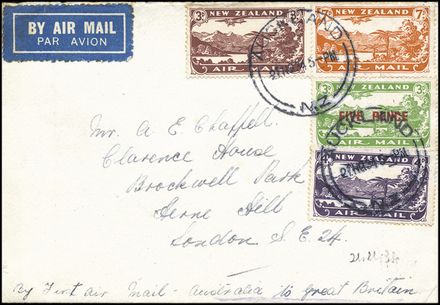 BY AIR MAIL
PAR AVION
3D NEW ZEALAND
AIR MAIL
NEW ZEALAND 7D
AIR MAIL
AUCKLAND
5-PM
N.Z.
ZEALAND
FIVE PENCE
AIR MAIL
AUCKLAND
N.Z.
NEW ZEALAND
AIR MAIL
Mr. A E Chappell
Clarence House
Brockwell Park
Herne Hill
London S.E. 24.
By First air Mail - Australia to great Britain